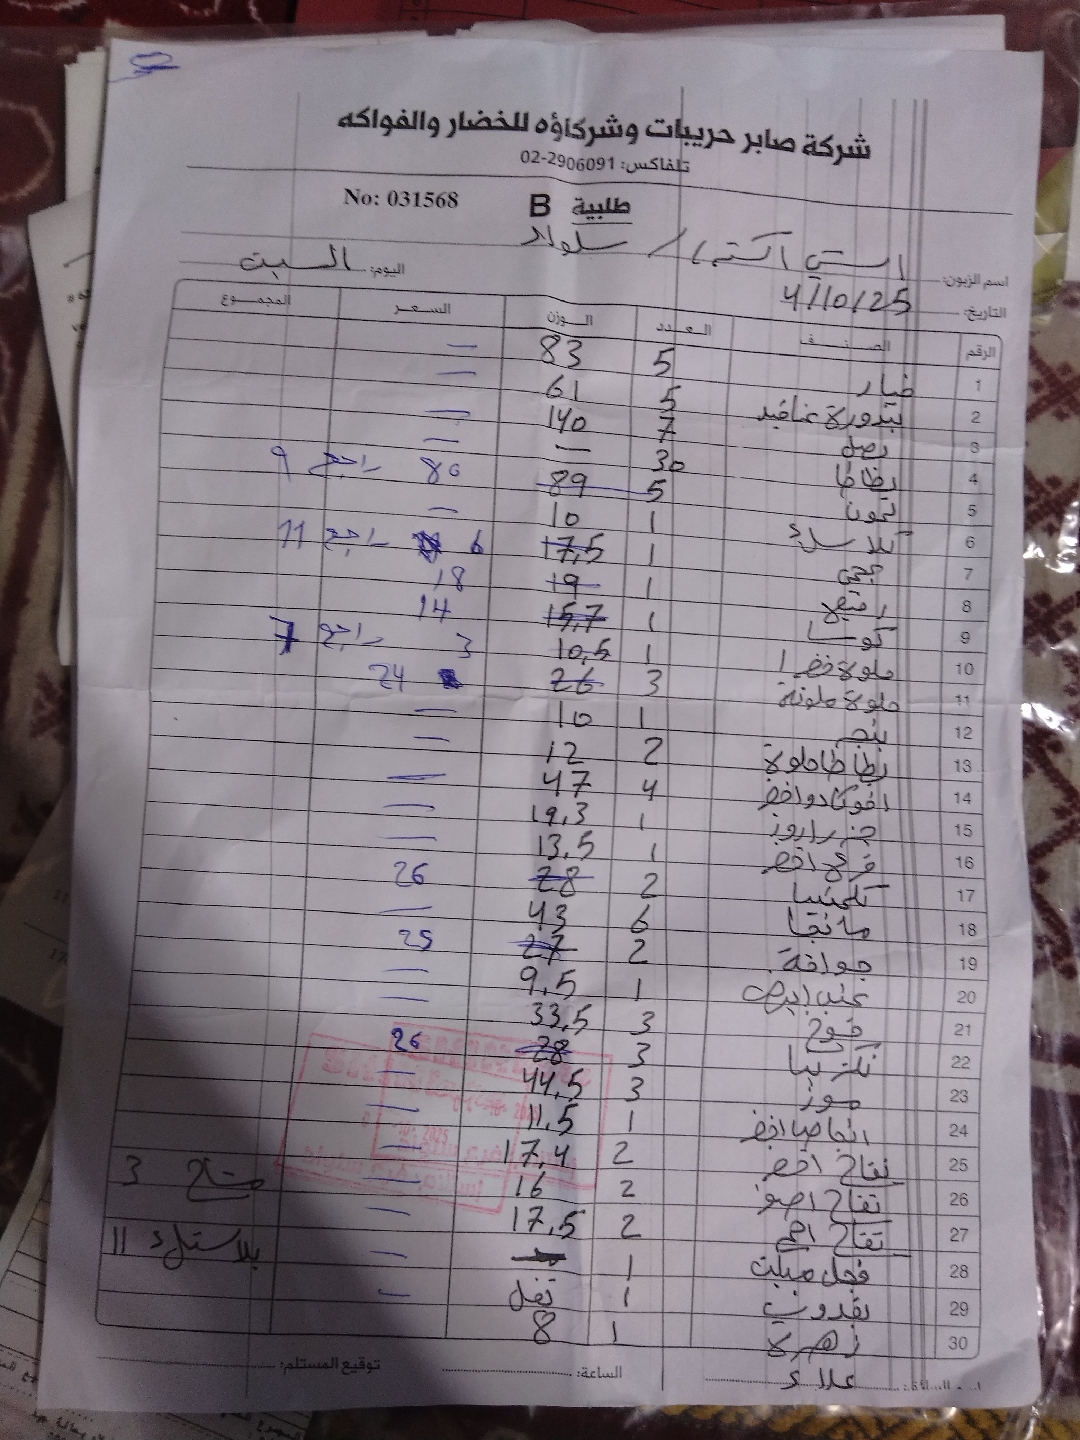 شركة صابر حريبات وشركاؤه للخضار والفواكه
تلفاكس: 02-2906091
طلبية B No: 031568
اسم الزبون: / سلواد
اليوم: السبت
التاريخ: 4/10/25
الرقم الصنف العدد الوزن السعر المجموع
1 خيار 5 83 —
2 بندورة عناقيد 5 61 —
3 بصل 7 140 —
4 بطاطا 30 — —
5 ليمون 5 89 80 راجع 9
6 1 10 —
7 1 17,5 6 راجع 11
8 1 19 18
9 كوسا 1 15,7 14
10 1 10,5 3 راجع 7
11 حلوة ملونة 3 26 24
12 1 10 —
13 بطاطا حلوة 2 12 —
14 افوكادو اخضر 4 47 —
15 جزر 1 19,3 —
16 قرع اخضر 1 13,5 —
17 كلمنتينا 2 28 26
18 مانجا 6 43 —
19 جوافة 2 27 25
20 عنب ابيض 1 9,5 —
21 خوخ 3 33,5 —
22 3 28 26
23 موز 3 44,5 —
24 انجاص اخضر 1 11,5 —
25 تفاح اخضر 2 17,4 —
26 تفاح اصفر 2 16 — 3
27 تفاح احمر 2 17,5
28 فجل 1 — بلاستيك 11
29 بقدونس 1 —
30 زهرة 1 8
علاء
الساعة:
توقيع المستلم: